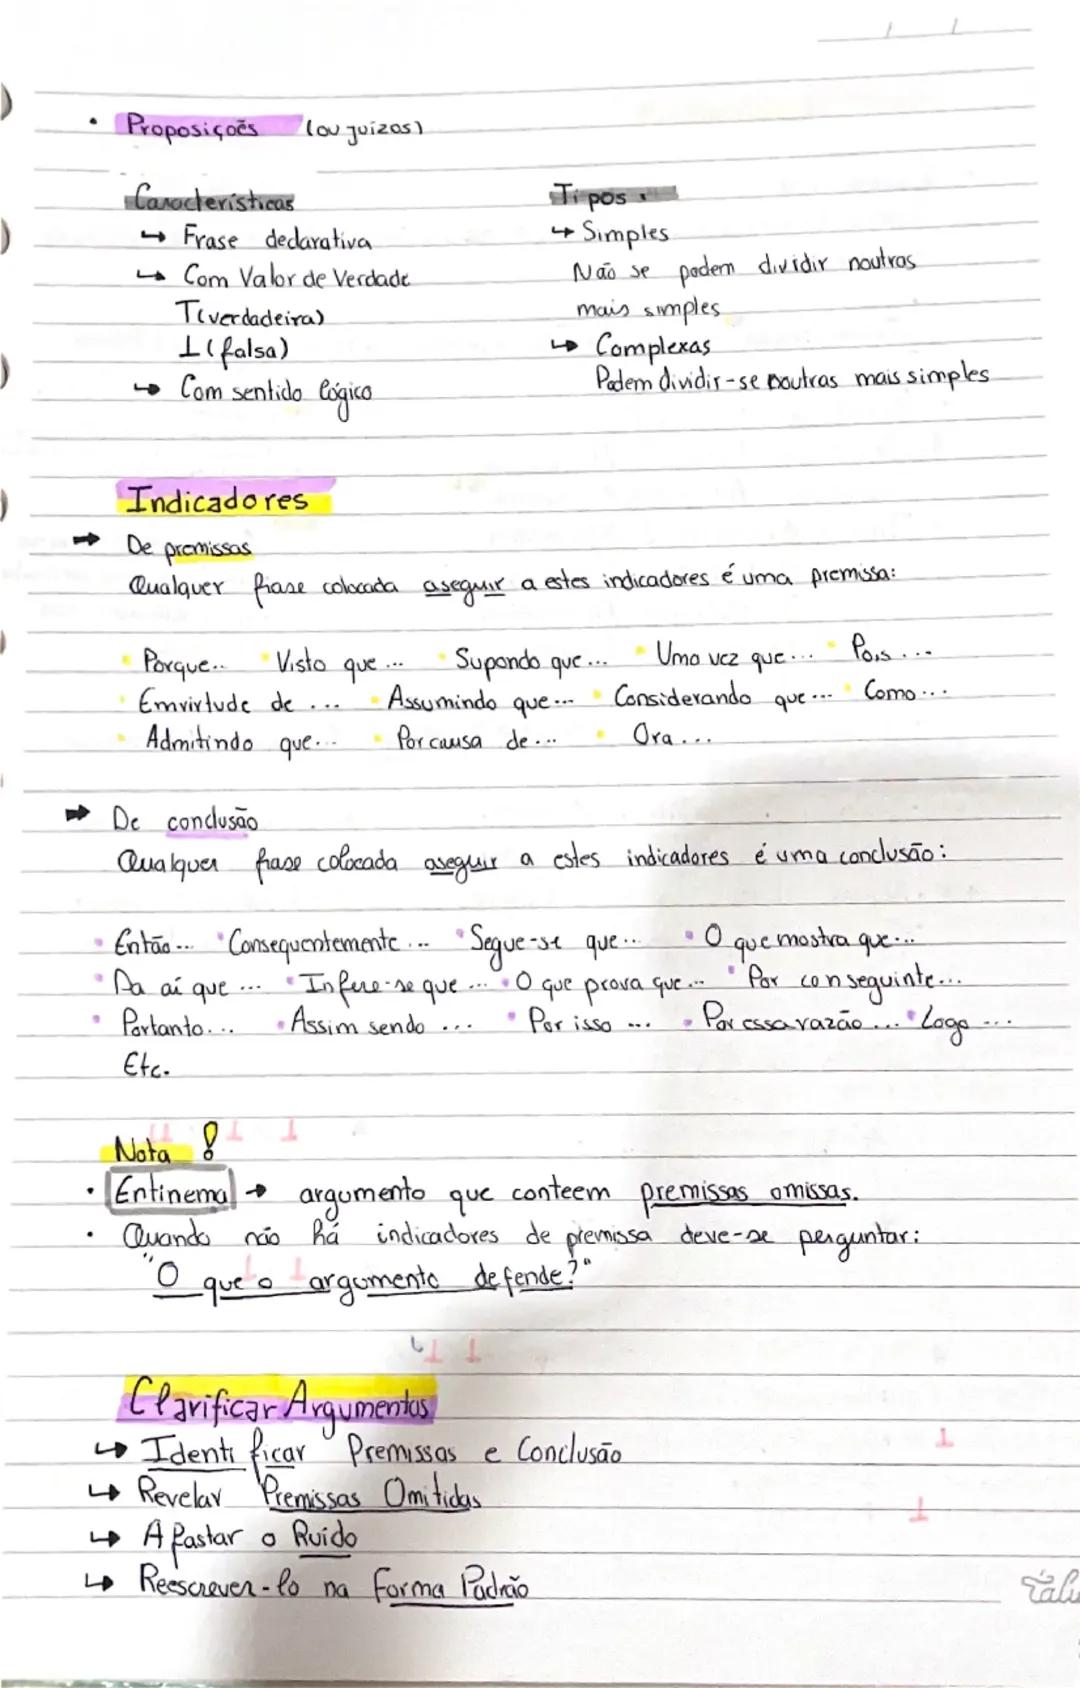 • Proposições (ou juízos)
Características
↳ Frase declarativa
↳ Com Valor de Verdade
T(verdadeira)
⊥(falsa)
↳ Com sentido lógico
Tipos
↳ Simples
Não se podem dividir noutras
mais simples
↳ Complexas
Podem dividir-se noutras mais simples
Indicadores
→ De premissas
Qualquer frase colocada aseguir a estes indicadores é uma premissa:
• Porque... • Visto que ... • Supondo que... • Uma vez que... • Pois ...
• Emvirtude de ... • Assumindo que... • Considerando que... • Como...
• Admitindo que... • Por causa de... • Ora...
→ De conclusão
Qualquer frase colocada aseguir a estes indicadores é uma conclusão:
• Então... • Consequentemente ... • Segue-se que... • O que mostra que...
• Da aí que ... • Infere-se que ... • O que prova que... • Por conseguinte...
• Portanto... • Assim sendo ... • Por isso ... • Por essa razão ... • Logo ...
Etc.
Nota !
• Entinema → argumento que conteem premissas omissas.
• Quando não há indicadores de premissa deve-se perguntar:
"O que o argumento defende?"
Clarificar Argumentos
↳ Identificar Premissas e Conclusão
↳ Revelar Premissas Omitidas
↳ Afastar o Ruído
↳ Reescrever-lo na Forma Padrão